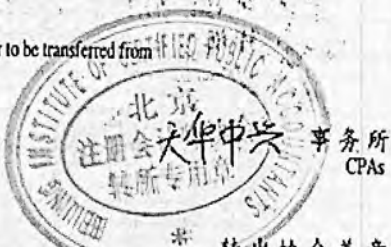 r to be transferred from
BEIJING INSTITUTE OF CERTIFIED PUBLIC ACCOUNTANTS
北京
注册会
天华中兴 事务所
CPAs
转所专用章
转出协会盖章